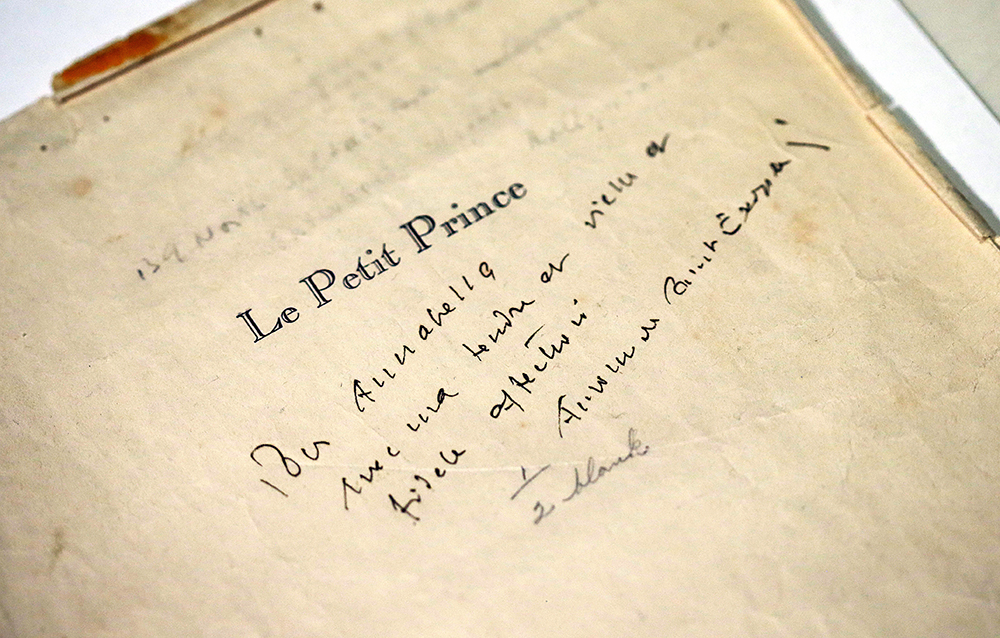 139 North
Le Petit Prince
Pour Annabella
avec ma tendre et vielle et
fidele affection
Antoine de Saint Exupéry
1/2 blank